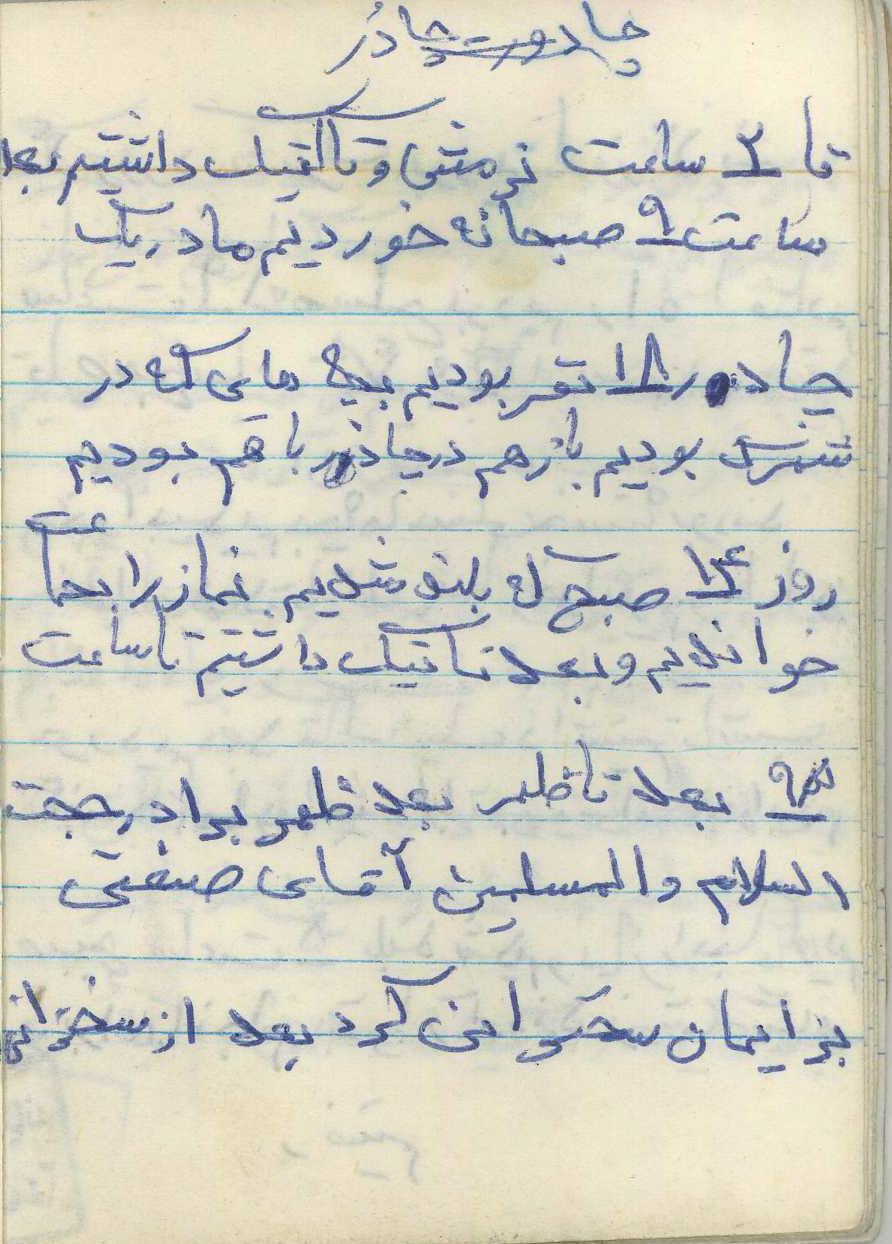 چادور چادر
تا ۲ ساعت نرمش و تاکتیک داشتیم بعد
ساعت ۹ صبحانه خوردیم ما در یک
چادر ۱۸ نفر بودیم بچه های که در
سنگر بودیم باز هم در چادر با هم بودیم
روز ۱۴ صبح که بلند شدیم نماز را بجماعت
خواندیم و بعد تاکتیک داشتیم تا ساعت
۹ بعد تا ظهر بعد ظهر برادر حجت
السلام والمسلمین آقای صفتی
برایمان سخنرانی کرد بعد از سخنرانی